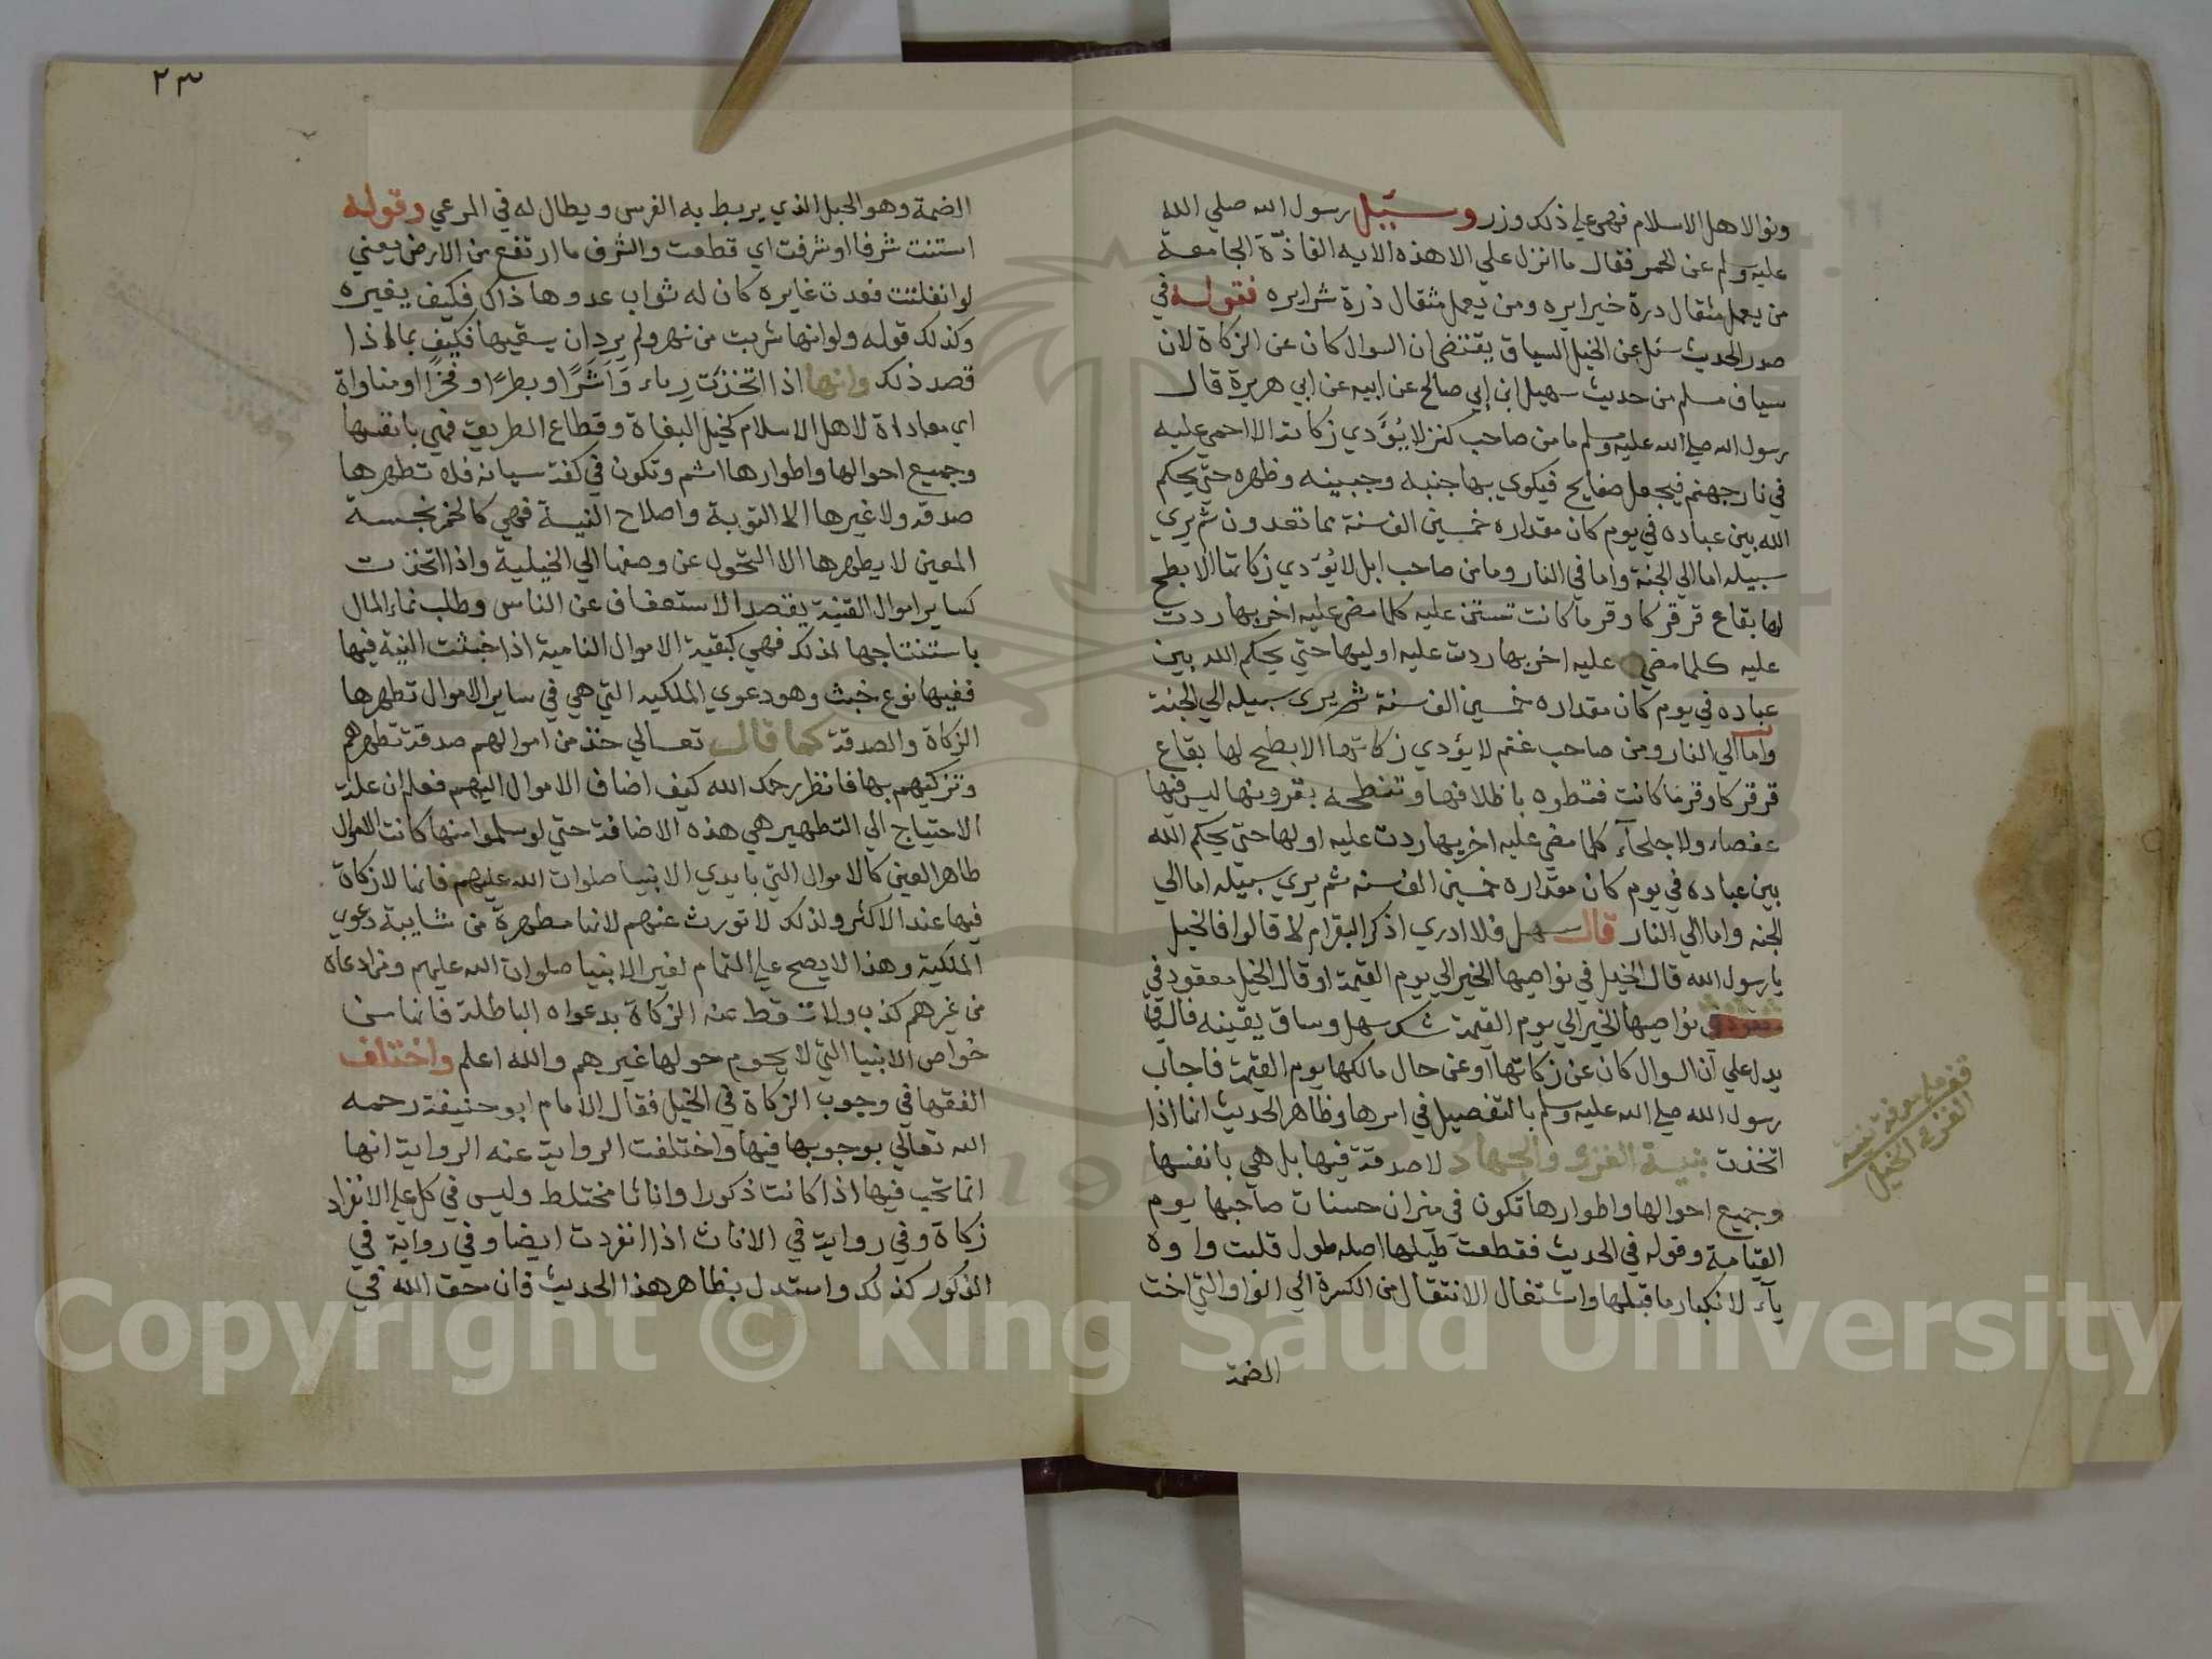 ونوالاهل الاسلام فهي علي ذلك وزر وسئيل رسول الله صلي الله
عليه وسلم عن الحمر فقال ما انزل علي الا هذه الايه الفاذّة الجامعة
من يعمل مثقال درة خيرا يره ومن يعمل مثقال ذرة شرا يره فقوله في
صدر الحديث سئل عن الخيل السياق يقتضي ان السوال كان عن الزكاة لان
سياق مسلم من حديث سهيل ابن ابي صالح عن ابيه عن ابي هريرة قال
رسول الله صلي الله عليه وسلم ما من صاحب كنز لا يُؤَدي زكاته الا احمي عليه
في نار جهنم فيجعل صفايح فيكوي بها جنبه وجبينه وظهره حتي يحكم
الله بين عباده في يوم كان مقداره خمسين الف سنة مما تعدون ثم يري
سبيله اما الي الجنة واما في النار وما من صاحب ابل لا يُؤَدي زكاتها الا بطح
لها بقاع قرقر كاوفر ما كانت تستن عليه كلما مضي عليه اخريها ردت
عليه كلما مضي عليه اخريها ردت عليه اوليها حتي يحكم الله بين
عباده في يوم كان مقداره خمسين الف سنة ثم يري سبيله الي الجنة
واما الي النار ومن صاحب غنم لا يؤدي زكاتها الا بطح لها بقاع
قرقر كاوفر ما كانت فتطوه باظلافها وتنطحه بقرونها ليس فيها
عقصاء ولا جلحاء كلما مضي عليه اخريها ردت عليه اولها حتي يحكم الله
بين عباده في يوم كان مقداره خمسين الف سنه ثم يري سبيله اما الي
الجنه واما الي النار قال سهل فلا ادري اذكر البقر ام لا قالوا فالخيل
يا رسول الله قال الخيل في نواصيها الخير الي يوم القيمة او قال الخيل معقود في
نواصيها الخير الي يوم القيمة شك سهل وساق بقيته فالسياق
يدل علي ان السوال كان عن زكاتها او عن حال مالكها يوم القيمة فاجاب
رسول الله صلي الله عليه وسلم بالتفصيل في امرها وظاهر الحديث انها اذا
اتخذت بنية الغزو والجهاد لا صدقة فيها بل هي بانفسها
وجميع احوالها واطوارها تكون في ميزان حسنات صاحبها يوم
القيامة وقوله في الحديث فقطعت طيلها اصله طول قلبت واوه
ياء لانكسار ما قبلها واشتغال الانتقال من الكسرة الي الواو التي اخت
الضمة
قف علي معرفة نية
الغزو الخيل
٢٣
الضمة وهو الحبل الذي يربط به الفرس ويطال له في المرعي وقوله
استنت شرفا او شرفت اي قطعت والشرف ما ارتفع من الارض يعني
لو انفلتت فعدت غايره كان له ثواب عدوها ذاك فكيف بغيره
وكذلك قوله ولو انها شربت من نهر ولم يرد ان يسقيها فكيف بما اذا
قصد ذلك وانها اذا اتخذت رياء وَاَشَرًا وبطرًا وفخرًا او مناواة
اي معاداة لاهل الاسلام كخيل البغاة وقطاع الطريق فهي بانفسها
وجميع احوالها واطوارها اشم وتكون في كفة سياته فلا تطهرها
صدقة ولا غيرها الا التوبة واصلاح النية فهي كالخمر نجسة
العين لا يطهرها الا التحول عن وصفها الي الخيلية واذا اتخذت
كساير اموال القنية بقصد الاستعفاف عن الناس وطلب نماء المال
باستنتاجها لذلك فهي كبقية الاموال النامية اذا خبثت النية فيها
ففيها نوع خبث وهو دعوي الملكيه التي هي في ساير الاموال تطهرها
الزكاة والصدقة كما قال تعالي خذ من اموالهم صدقة تطهرهم
وتزكيهم بها فانظر رحمك الله كيف اضاف الاموال اليهم فعلم ان علة
الاحتياج الي التطهير هي هذه الاضافة حتي لو سلموا منها كانت الاموال
طاهر العين كالاموال التي بايدي الانبيا صلوات الله عليهم فانها لا زكاة
فيها عند الاكثر ولذلك لا تورث عنهم لانها مطهرة من شايبة دعوي
الملكية وهذا لا يصح علي التمام لغير الانبيا صلوات الله عليهم ومن ادعاه
من غيرهم كذب ولا تسقط عنه الزكاة بدعواه الباطلة فانها من
خواص الانبيا التي لا يحوم حولها غيرهم والله اعلم واختلف
الفقها في وجوب الزكاة في الخيل فقال الامام ابو حنيفة رحمه
الله تعالي بوجوبها فيها واختلفت الرواية عنه الرواية انها
انما تجب فيها اذا كانت ذكورا واناثا مختلط وليس في كل علي الانفراد
زكاة وفي رواية في الاناث اذا انفردت ايضا وفي رواية في
الذكور كذلك واستدل بظاهر هذا الحديث فان حق الله في
Copyright © King Saud University
1957